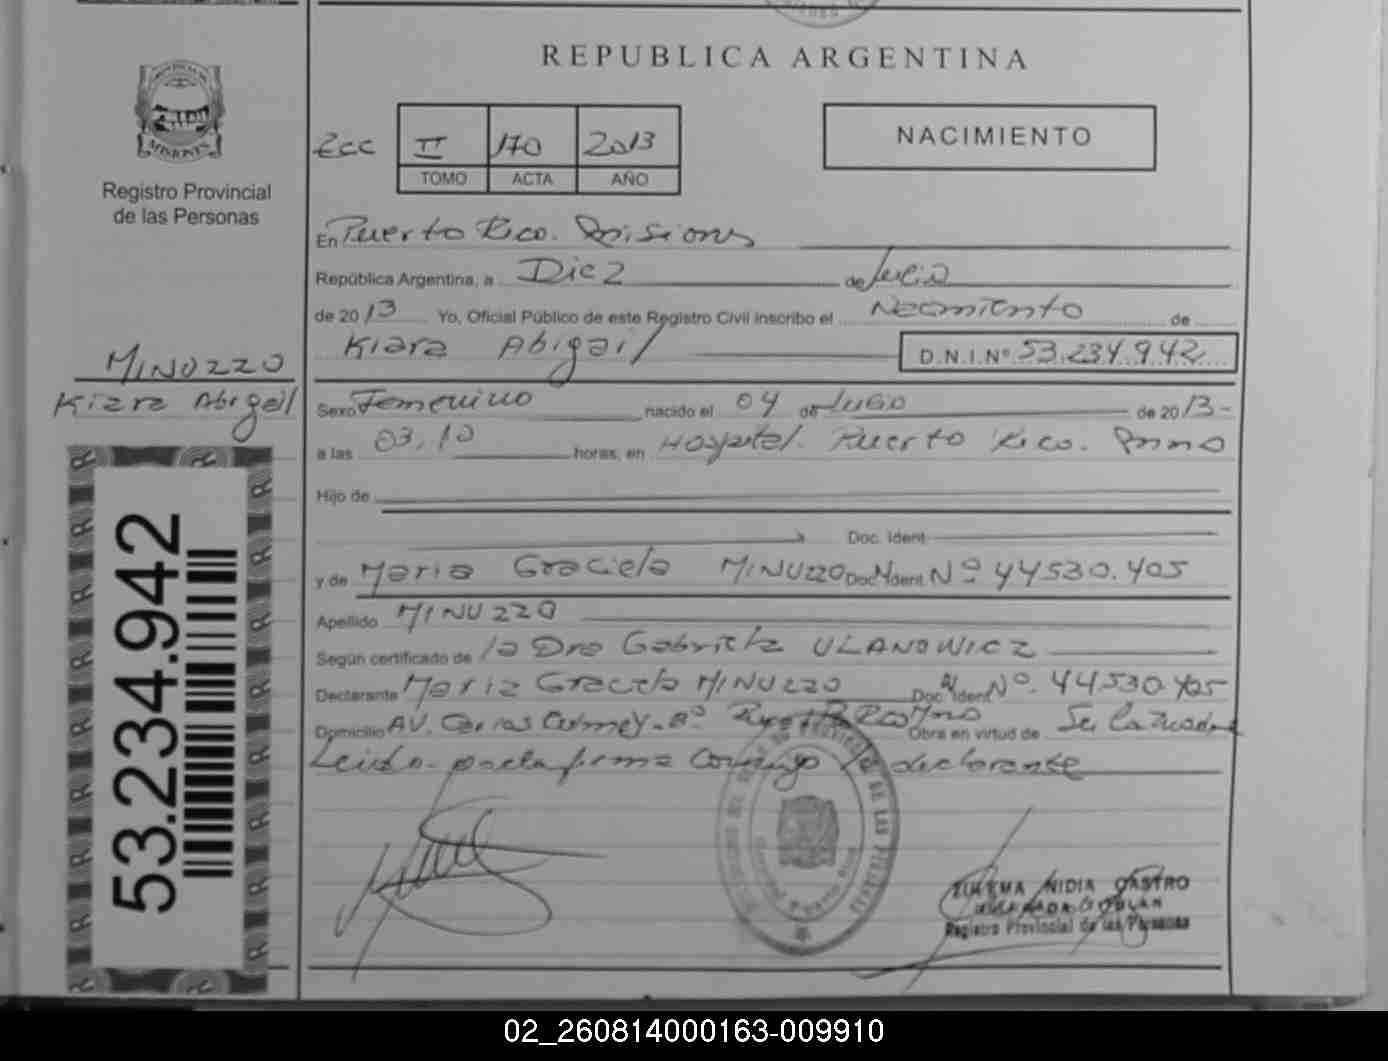 REPUBLICA ARGENTINA
MISIONES
Registro Provincial
de las Personas
Ecc II 170 2013
TOMO ACTA AÑO
NACIMIENTO
En Puerto Rico. Misiones
República Argentina, a Diez de Julio
de 2013 Yo, Oficial Público de este Registro Civil inscribo el Nacimiento de
Kiara Abigail D.N.I.Nº 53.234.942
MINUZZO
Kiara Abigail
Sexo Femenino nacido el 04 de Julio de 2013-
a las 03,10 horas, en Hospital. Puerto Rico. Mnes
Hijo de
Doc. Ident
y de Maria Graciela MINUZZO Doc. Ident Nº 44530.405
Apellido MINUZZO
Según certificado de la Dra Gabriela ULANOWICZ
Declarante Maria Graciela MINUZZO Doc. Ident Nº. 44530.405
Domicilio AV. Carlos Culmey-Bº Obra en virtud de Ser la madre
Leida. conmigo la declarante
53.234.942
NIDIA CASTRO
Registro Provincial de las Personas
02_260814000163-009910